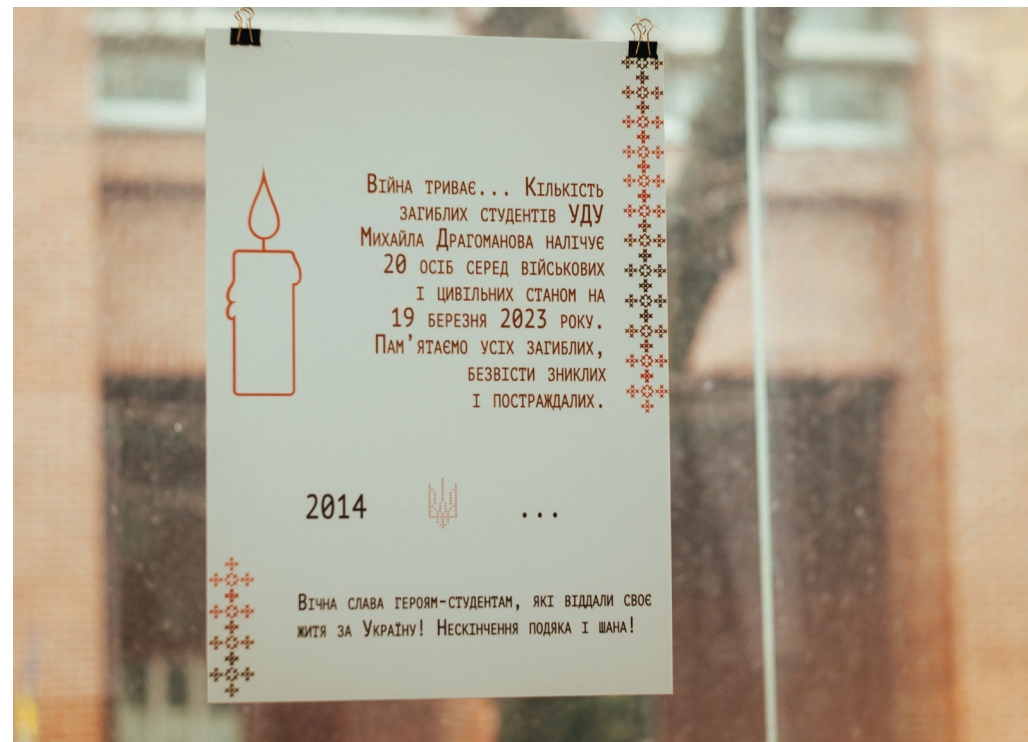 Війна триває... Кількість
загиблих студентів УДУ
Михайла Драгоманова налічує
20 осіб серед військових
і цивільних станом на
19 березня 2023 року.
Пам'ятаємо усіх загиблих,
безвісти зниклих
і постраждалих.
2014 ...
Вічна слава героям-студентам, які віддали своє
житя за Україну! Нескінчення подяка і шана!